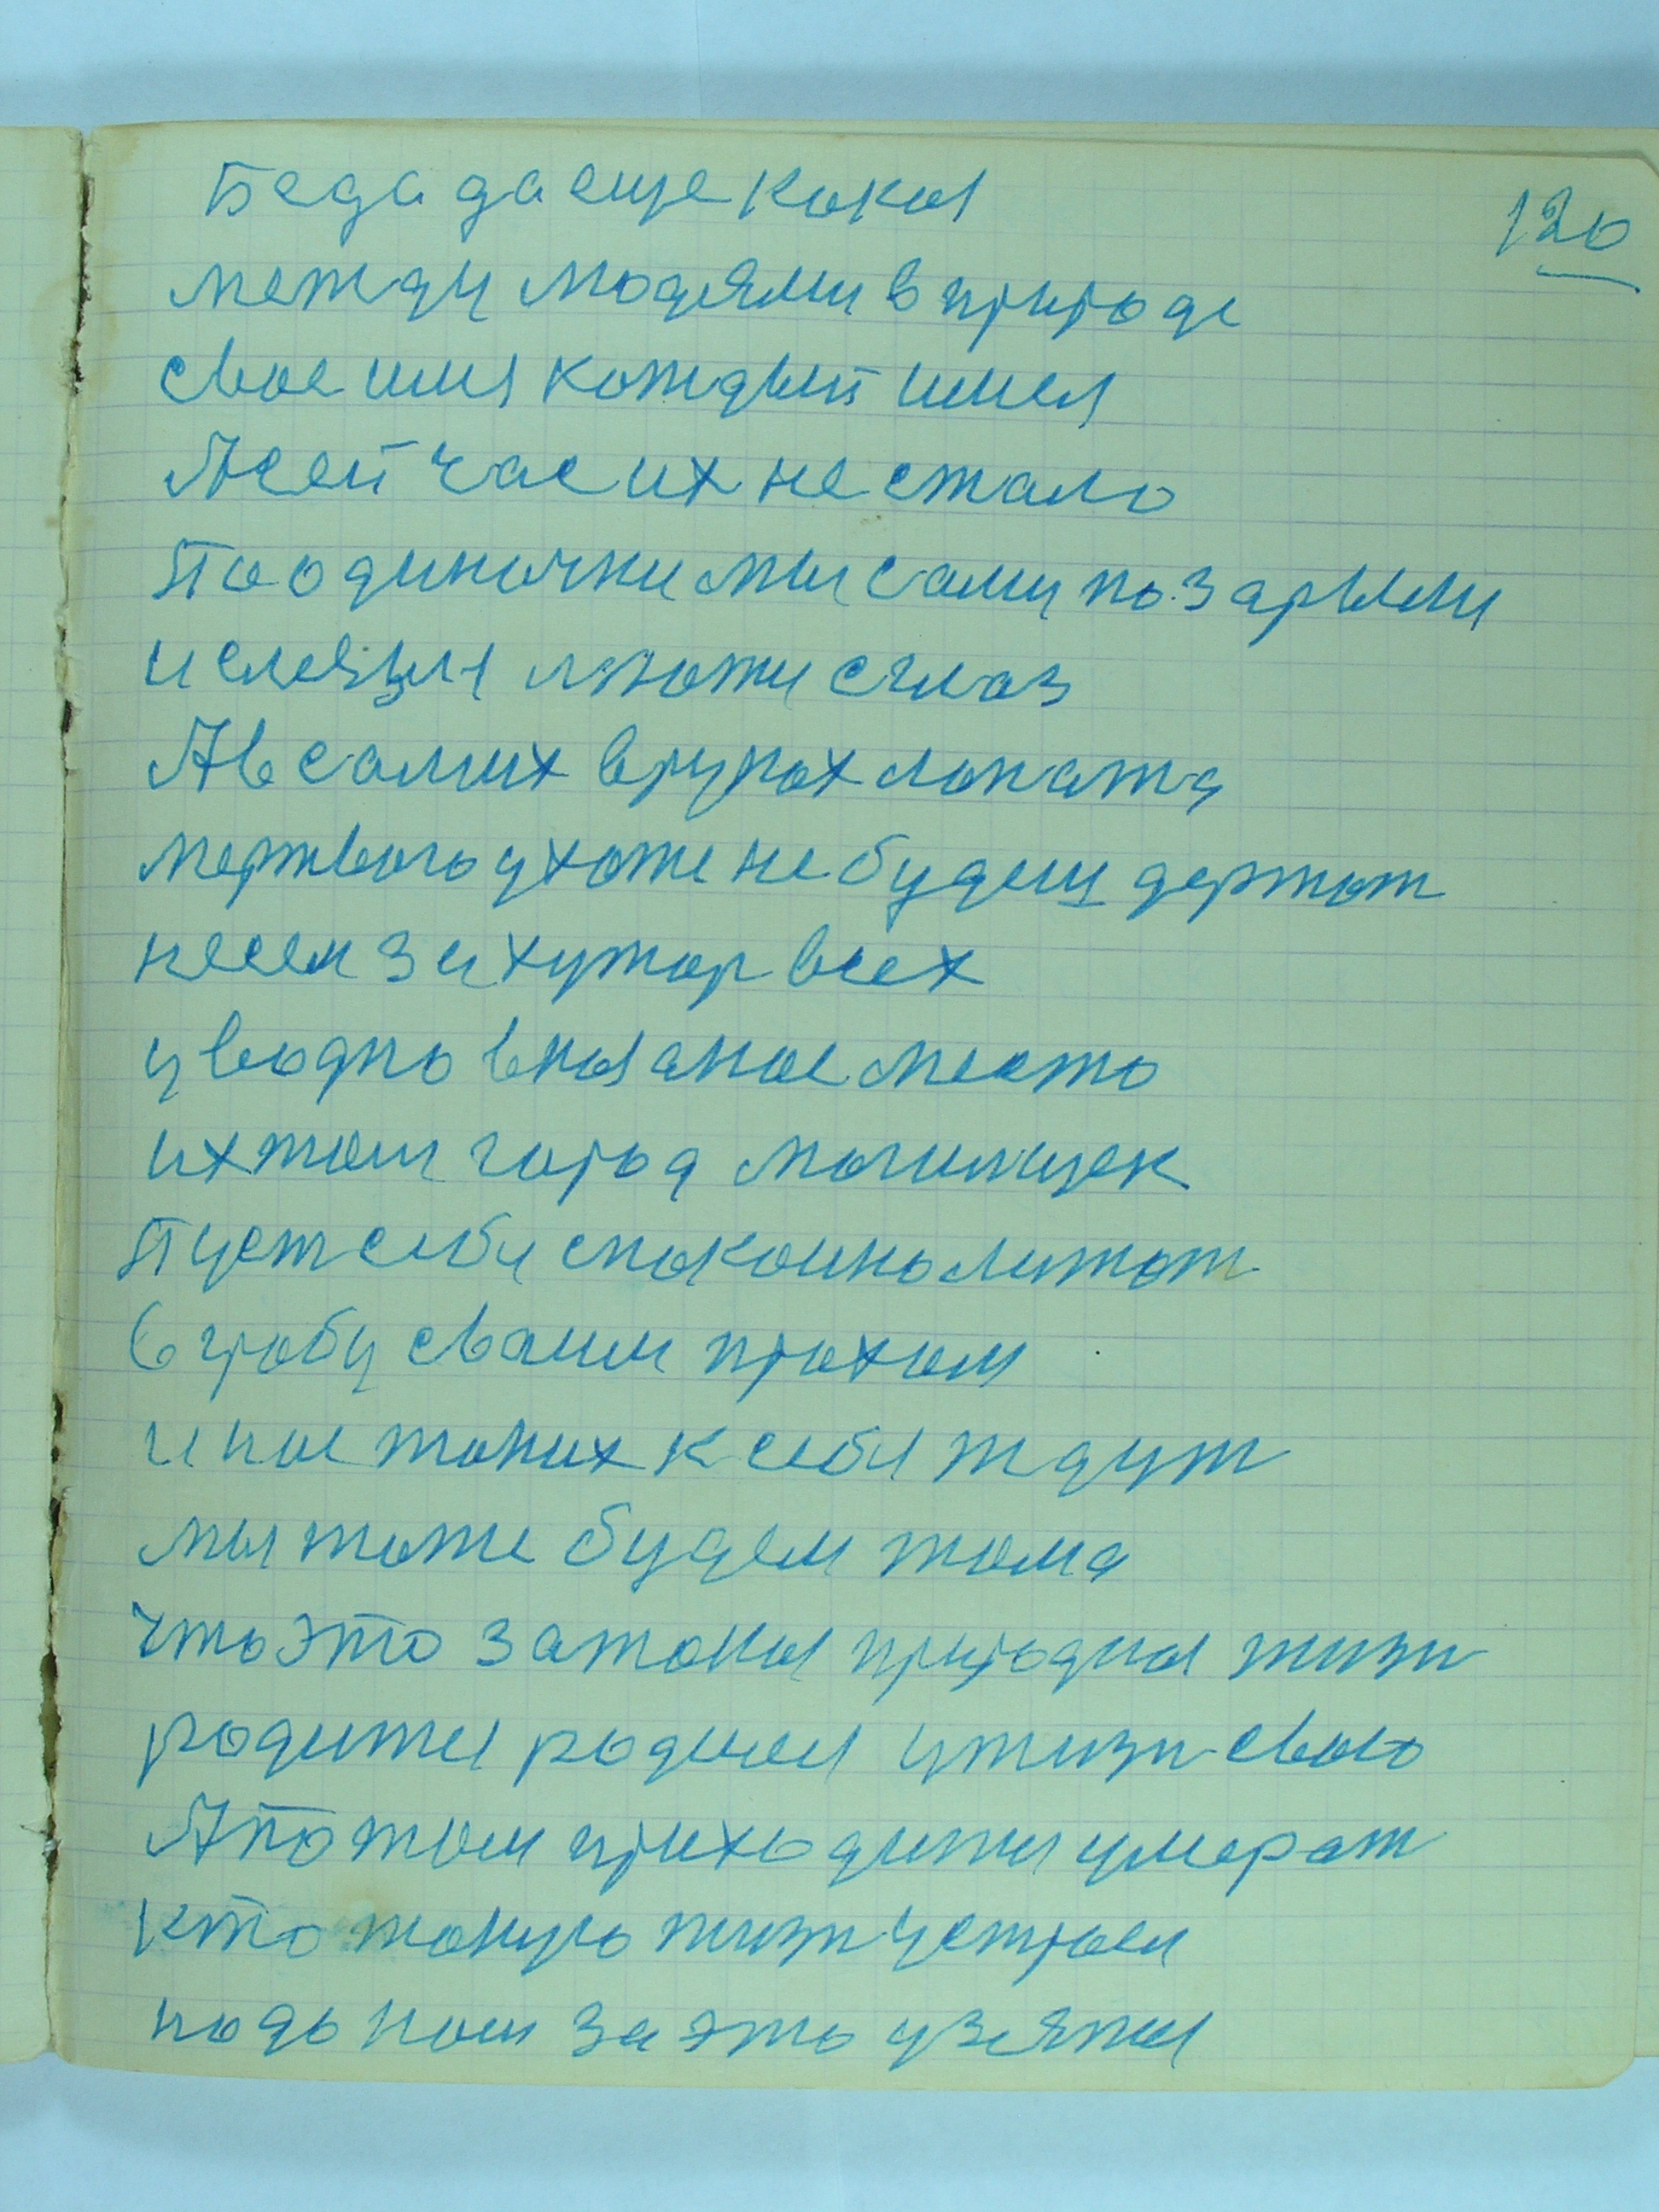 Беда да еще какая
120
между людями в природе
свое имя каждый имел
А сейчас их не стало
По одиночки мы сами позарыли
и слезы льюжи с глаз
А в самих в руках лопата
мертвого у хате не будеш держат
несем за хутор всех
у водно вказаное место
их там город могилищек
Пуст себе спакоино лижат
в гробу сваим прахом
и нас таких к себя ждут
мы тоже будем тама
что это за такая природная жизн
родится родился у жизн свою
А потом приходится умерат
кто такую жизн устроел
надо нам за это узятся